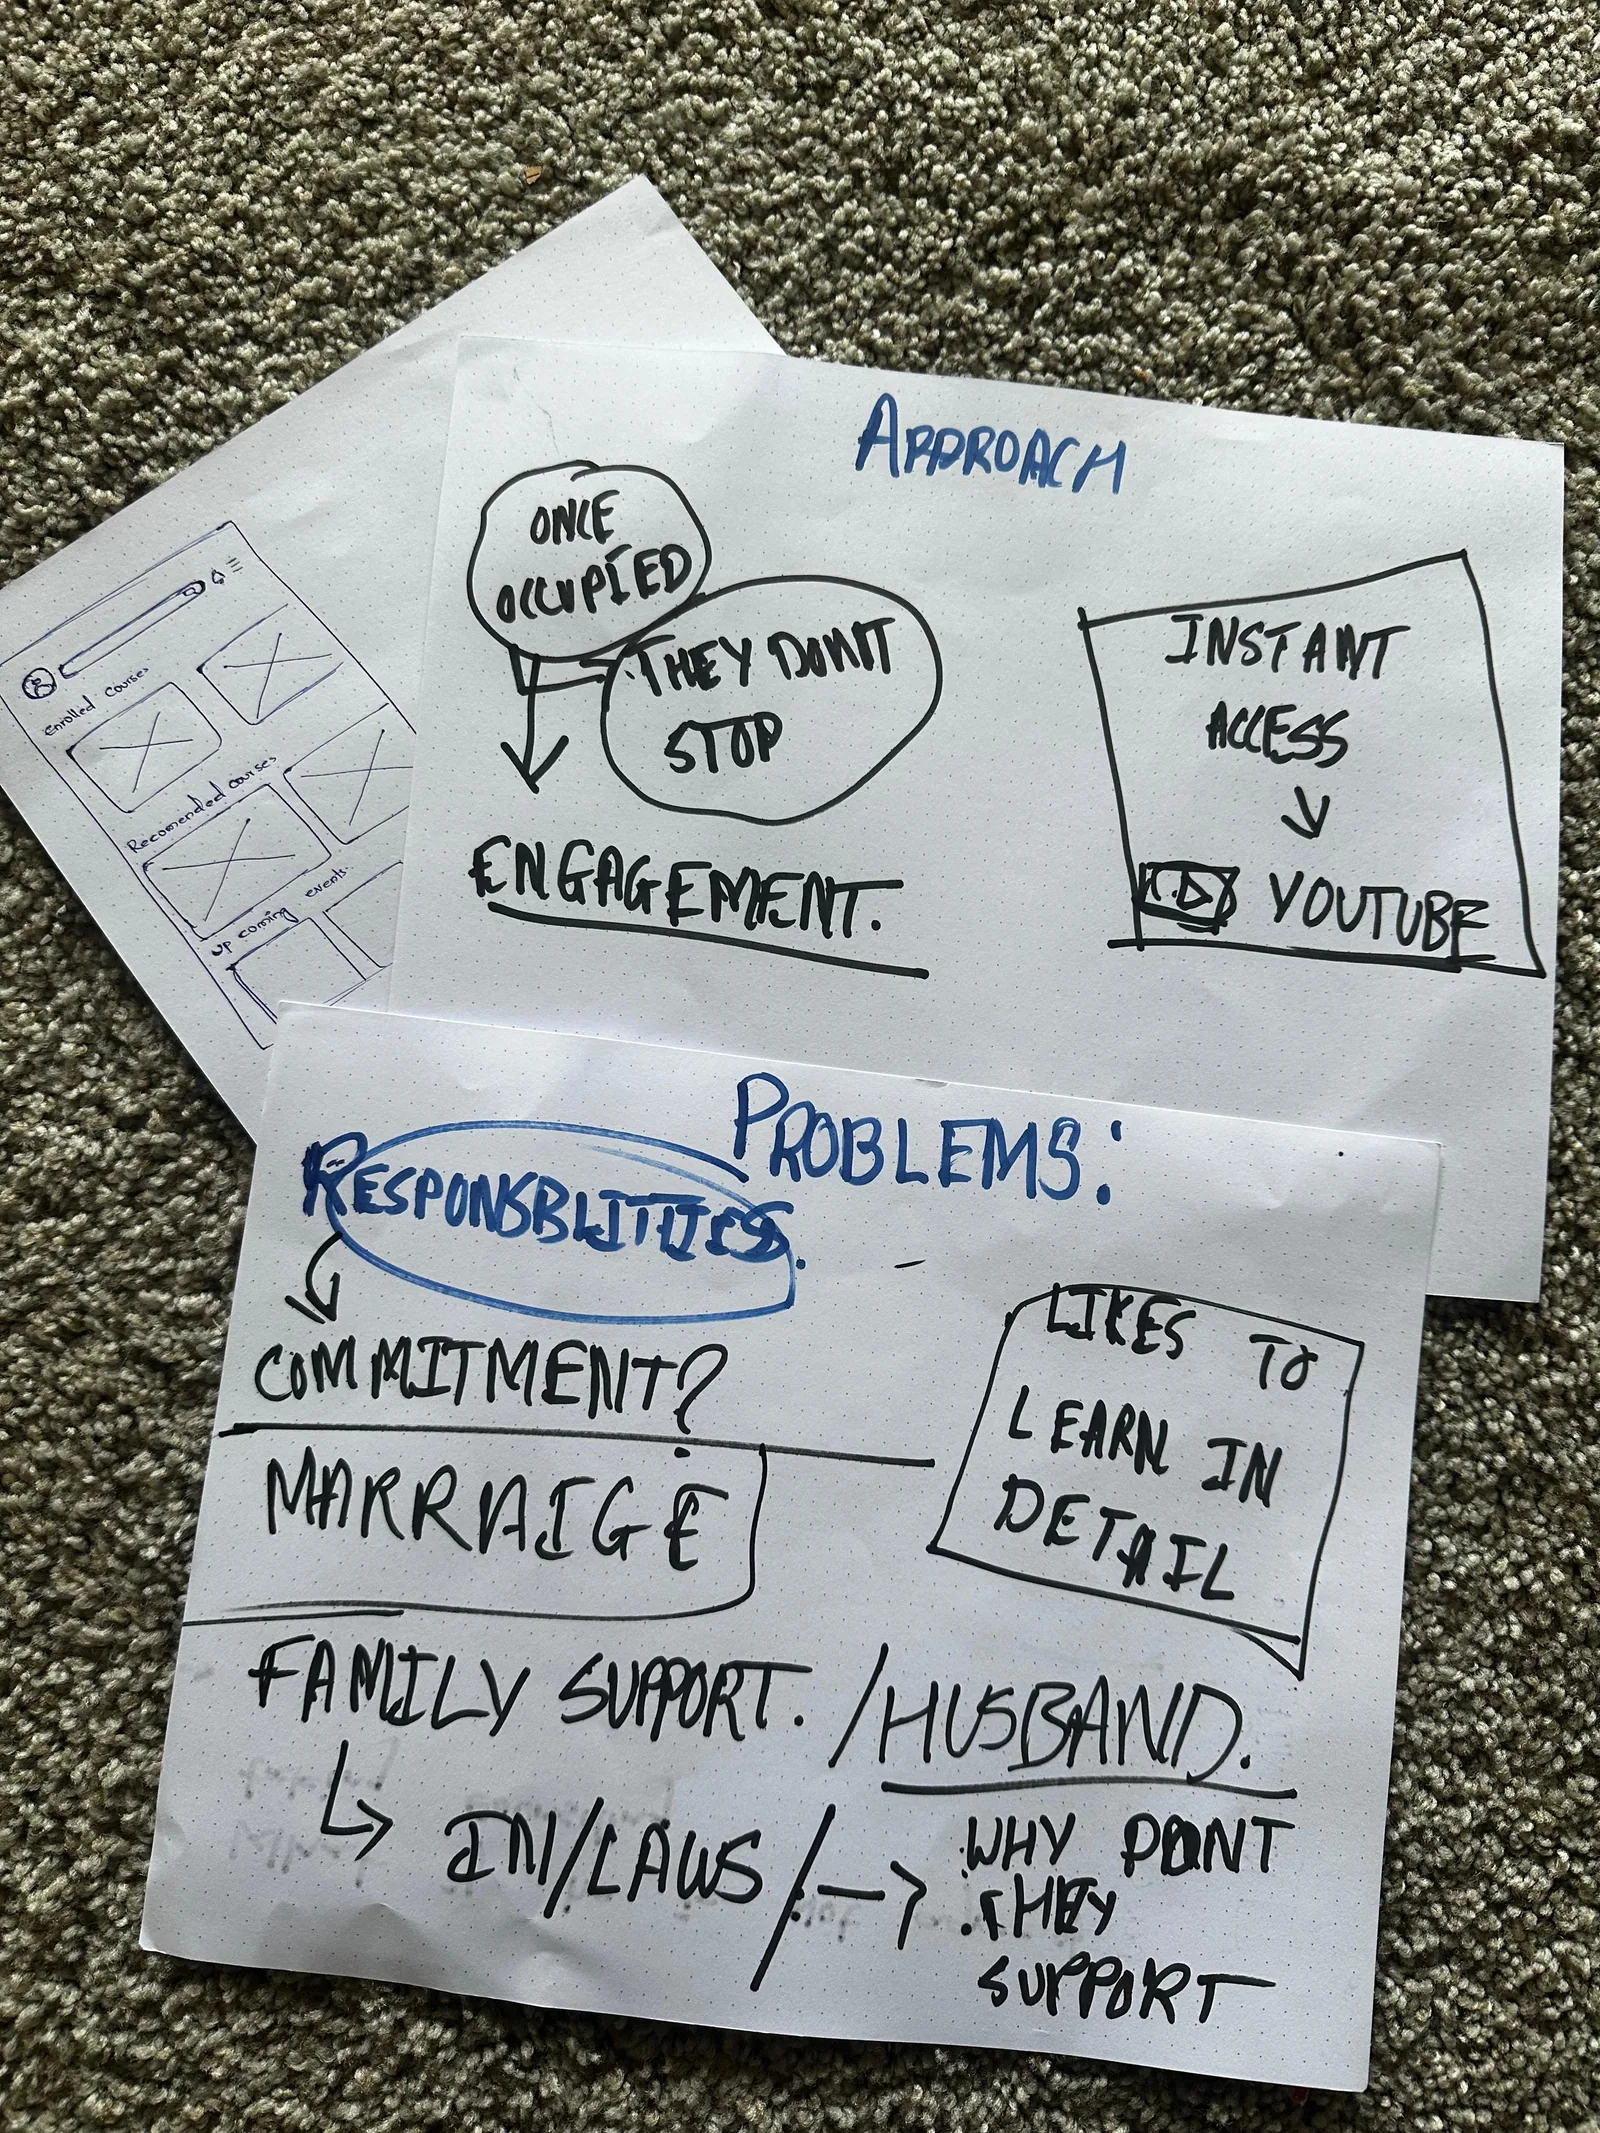 APPROACH
ONCE
OCCUPIED
THEY DONT
STOP
ENGAGEMENT.
INSTANT
ACCESS
YOUTUBE
enrolled courses
Recomended courses
up coming events.
PROBLEMS:
RESPONSBLITIES.
COMMITMENT?
MARRAIGE
LIKES TO
LEARN IN
DETAIL
FAMILY SUPPORT. / HUSBAND.
IN/LAWS /
WHY DONT
THEY
SUPPORT